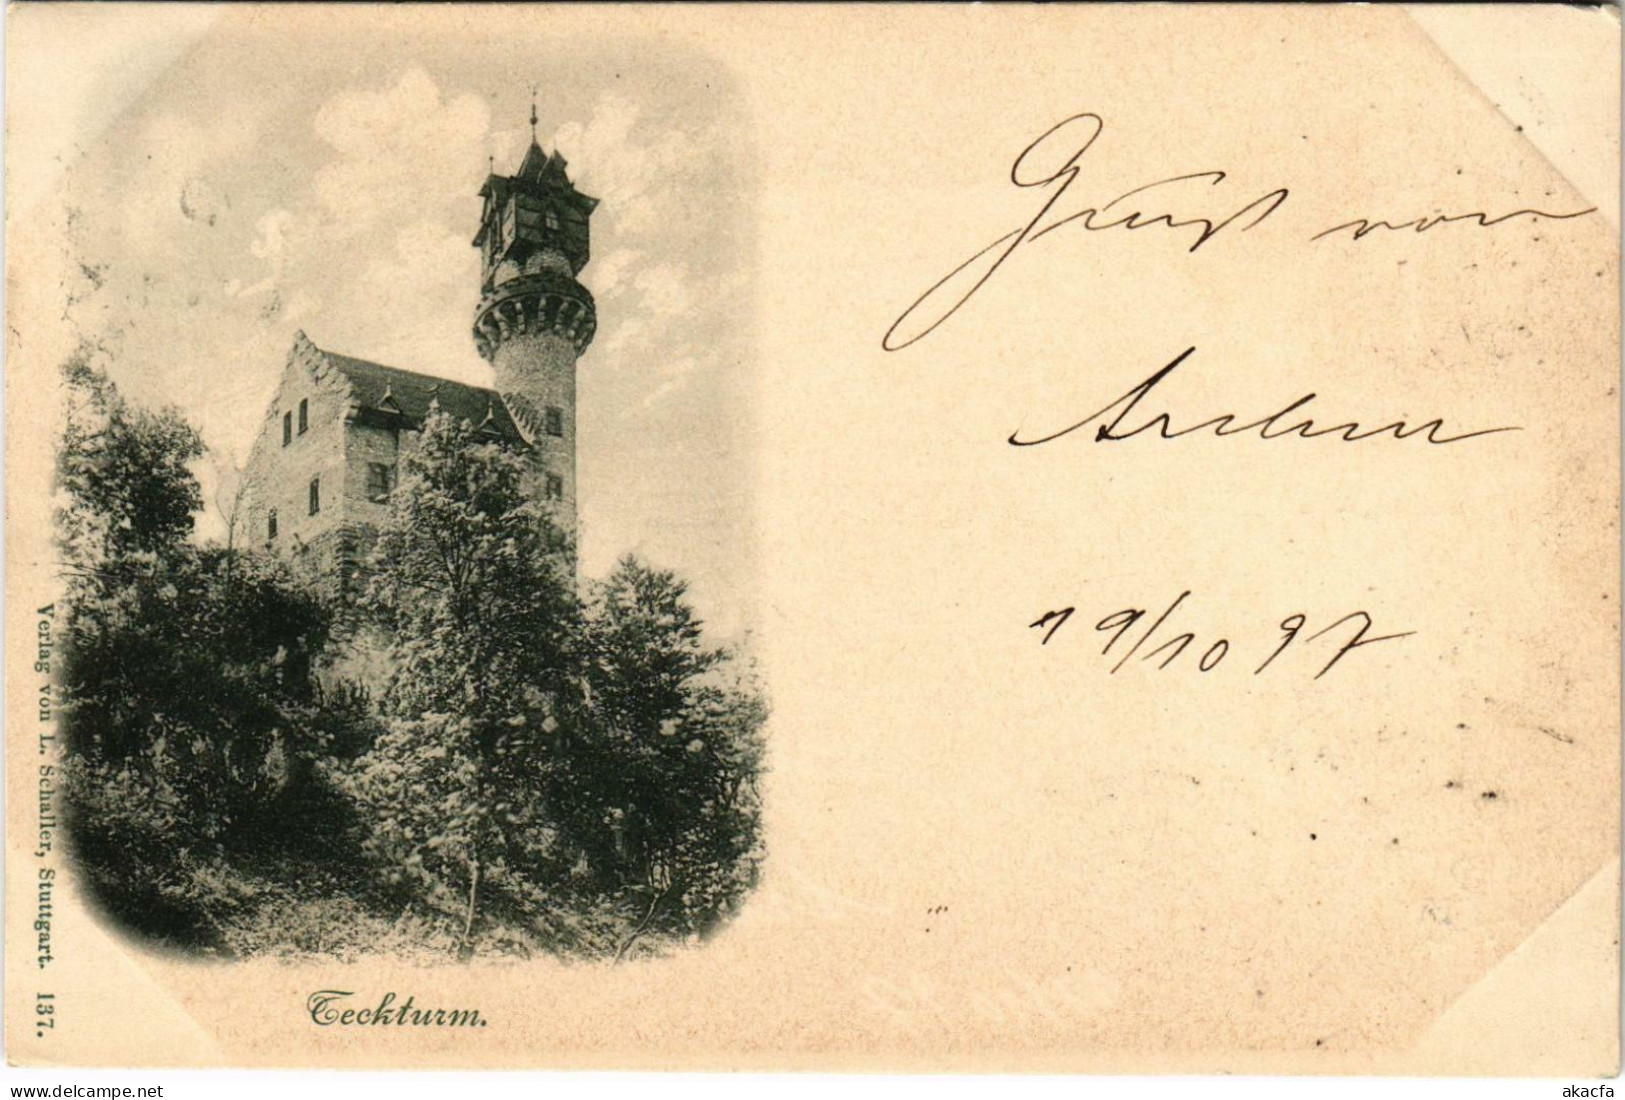 Gruß von
19/10 97
Verlag von L. Schaller, Stuttgart. 137.
Teckturm.
www.delcampe.net
akacfa